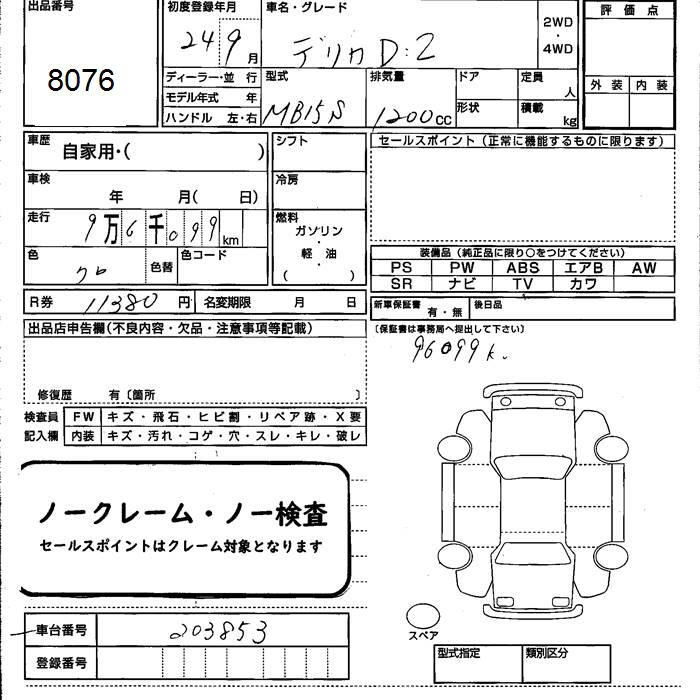 出品番号
8076
初度登録年月
24 9 月
車名・グレード
デリカD:2
2WD
・
4WD
評価点
外装 内装
ディーラー・並 行
モデル年式 年
ハンドル 左・右
型式
MB15S
排気量
1200cc
ドア
形状
定員
人
積載
kg
車歴
自家用・( )
車検
年 月( 日)
走行
9万6千099km
色
クロ
色替
色コード
シフト
冷房
燃料
ガソリン
・
軽 油
( )
セールスポイント(正常に機能するものに限ります)
装備品(純正品に限り○をつけてください)
PS PW ABS エアB AW
SR ナビ TV カワ
R券 11380 円
名変期限 月 日
新車保証書 有・無
後日品
(保証書は事務局へ提出して下さい)
96099k.
出品店申告欄(不良内容・欠品・注意事項等記載)
修復歴 有〔箇所 〕
検査員記入欄
FW キズ・飛石・ヒビ割・リペア跡・X要
内装 キズ・汚れ・コゲ・穴・スレ・キレ・破レ
ノークレーム・ノー検査
セールスポイントはクレーム対象となります
車台番号 203853
登録番号
スペア
型式指定 類別区分